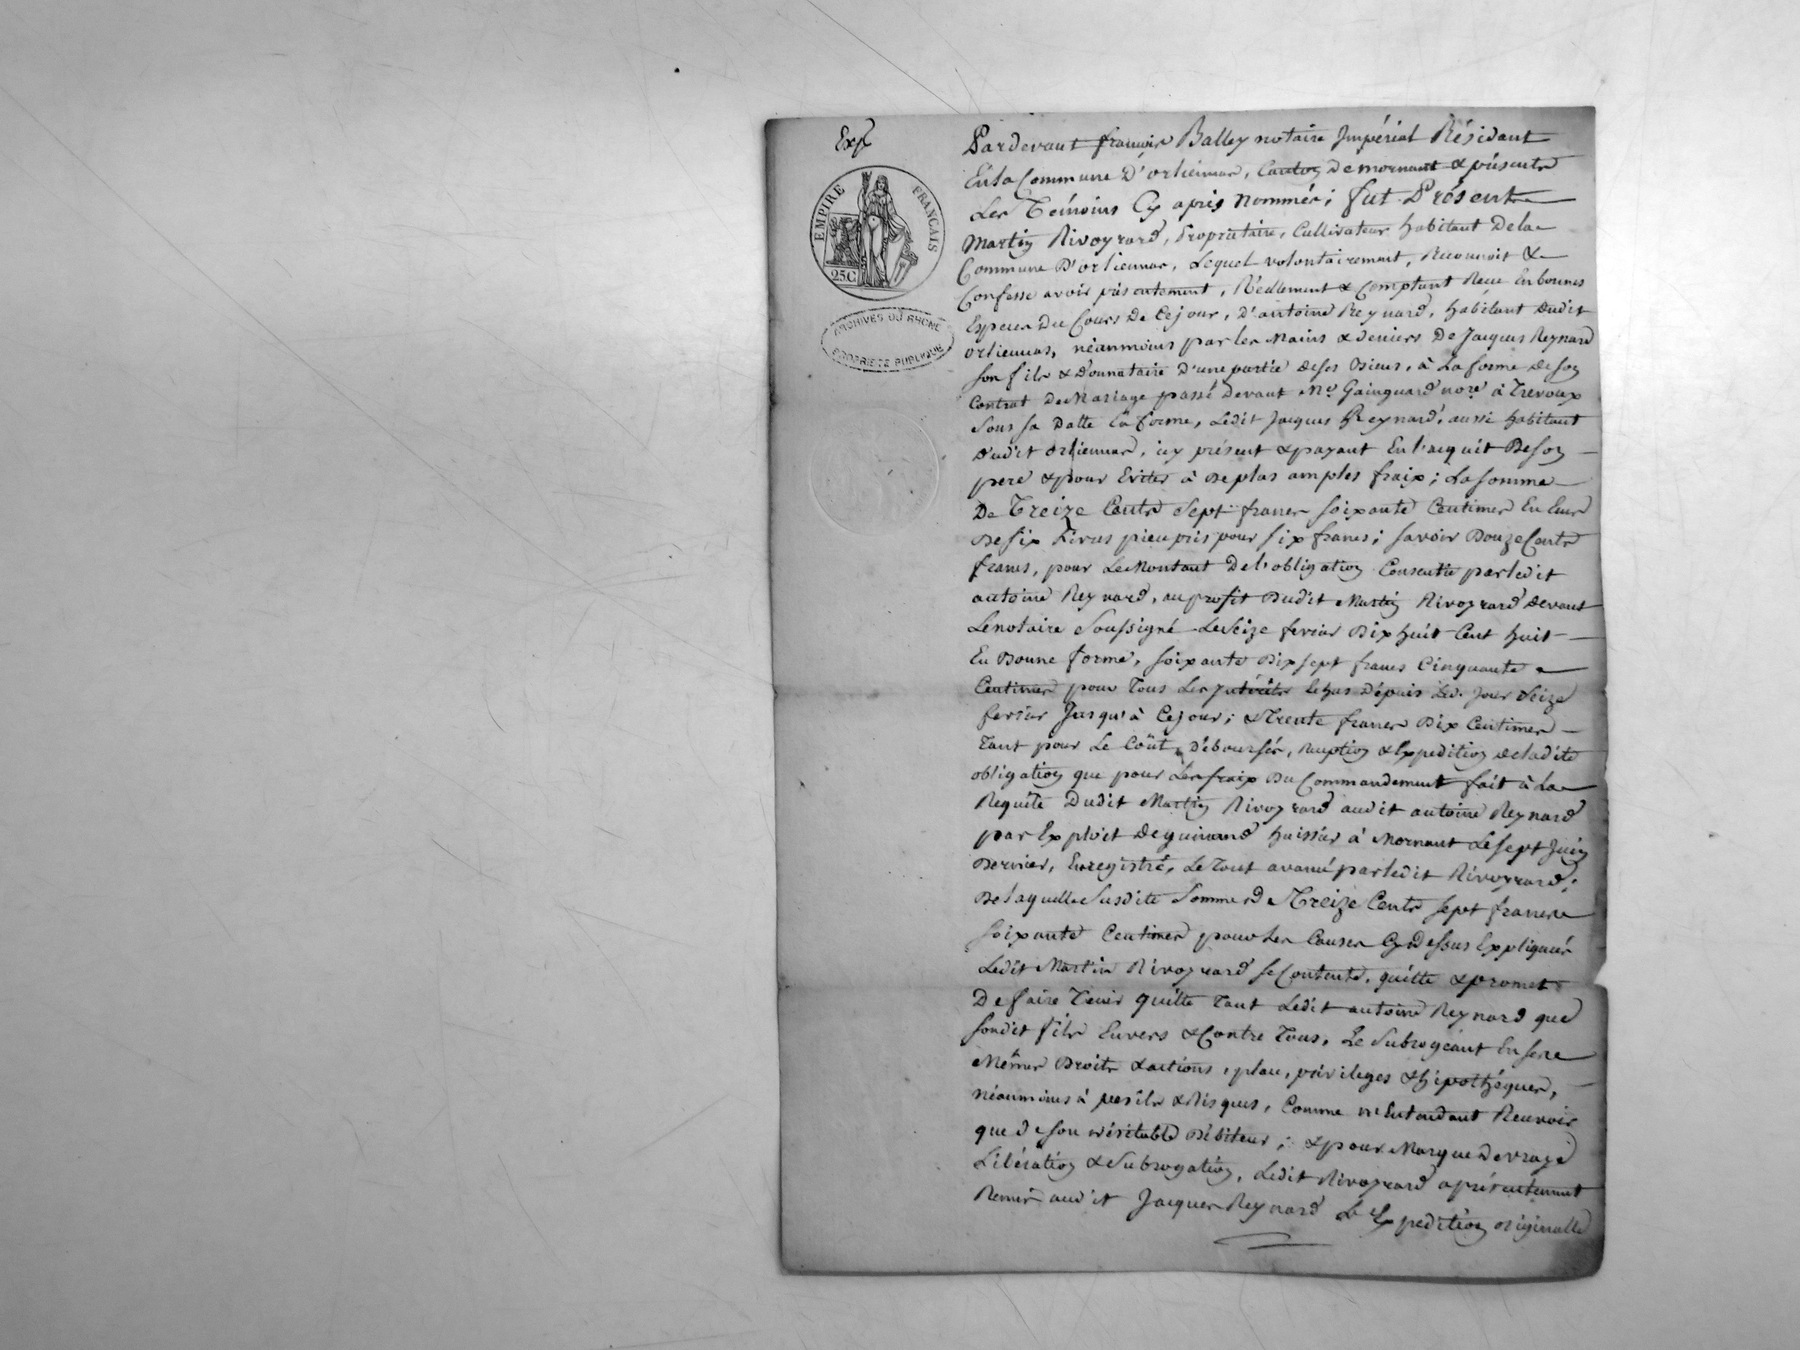 Exp.
EMPIRE FRANÇAIS
25C
ARCHIVES DU RHONE
PROPRIETE PUBLIQUE
Pardevant françois Balley notaire Impérial Résidant
En la Commune D'orliennas, Canton de mornant & présents
Les Témoins Cy après Nommés; fut Présent
Martin Rivoyrard, Propriétaire, Cultivateur habitant De la
Commune D'orliennas, Lequel volontairement, Reconnoit &
Confesse avoir présentement, Réellement & Comptant Reçu En bonnes
Especes Du Cours De Cejour, D'antoine Reynard, habitant Dudit
orliennas, néanmoins par les Mains & deniers De Jacques Reynard
son fils & Donnataire D'une partie De ses Biens, à La forme De son
Contrat De Mariage passé Devant Me. Gainguard nore. à Trevoux
Sous sa Datte En forme, Ledit Jacques Reynard, aussi habitant
Dudit orliennas, icy présent & payant En l'acquit De son
pere & pour Eviter à De plus amples fraix; La somme
De Treize Cents Sept francs soixante Centimes En Ecus
De six Livres piece pris pour six francs; savoir Douze Cents
francs, pour Le Montant De l'obligation Consentie par ledit
antoine Reynard, au profit Dudit Martin Rivoyrard Devant
Le notaire Soussigné Le Seize fevrier Dix huit Cent huit
En Bonne forme, soixante Dix sept francs Cinquante
Centimes pour Tous Les Intérêts Echus Depuis Led. Jour Seize
fevrier Jusqu'à Cejour; & Trente francs Dix Centimes
Tant pour Le Coût, Déboursés, Reception & Expedition de ladite
obligation que pour Les fraix Du Commandement fait à La
Requête Dudit Martin Rivoyrard audit antoine Reynard
par Exploit De guinand huissier à Mornant Le Sept Juin
Dernier, Enregistré, Le Tout avancé par ledit Rivoyrard;
De laquelle Susdite Somme De Treize Cents sept francs
soixante Centimes pour Les Causes Cy Dessus Expliquées
Ledit Martin Rivoyrard se Contente, quitte & promet
De faire Tenir quitte Tant Ledit antoine Reynard que
sondit fils Envers & Contre Tous, Le Subrogeant En ses
Mêmes Droits & actions, place, privileges & hipothéques,
néanmoins à ses périls & Risques, Comme n'Entendant Recevoir
que De son véritable Débiteur; & pour Marque De vraye
Libération & Subrogation, Ledit Rivoyrard a présentement
Remis audit Jacques Reynard L'Expedition originalle